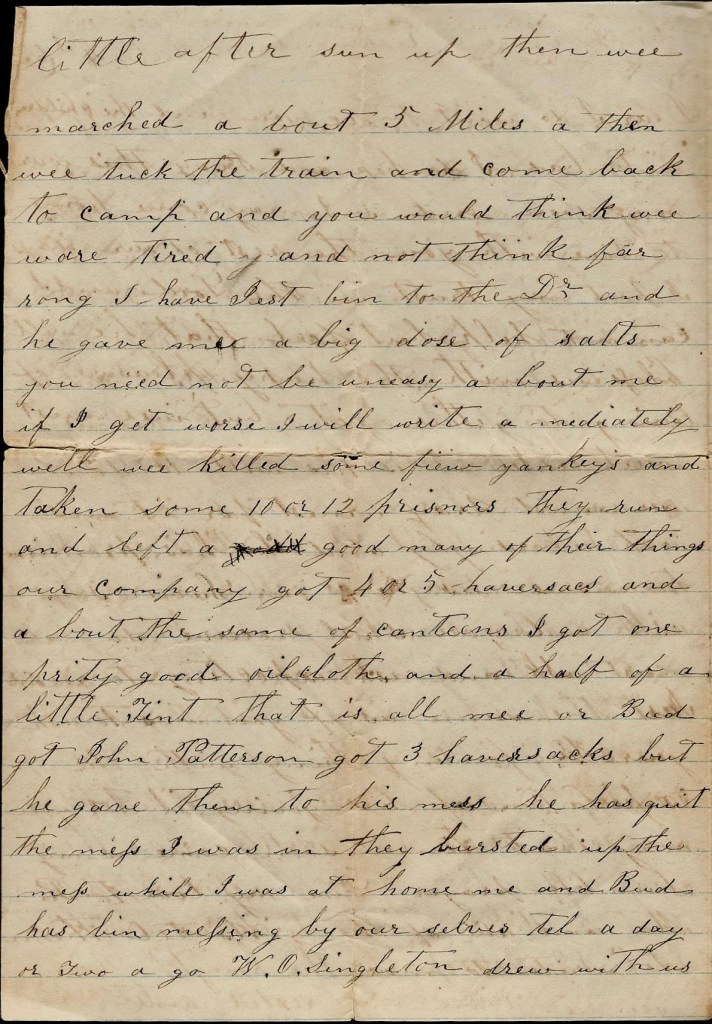 little after sun up then wee
marched a bout 5 Miles a then
wee tuck the train and come back
to camp and you would think wee
ware tired y and not think far
rong I have Jest bin to the Dr and
he gave mee a big dose of salts
you need not be uneasy a bout me
if I get worse I will write a mediately
well wee killed some fiew yankeys and
taken some 10 or 12 prisnors they run
and left a good many of their things
our company got 4 or 5 haversacs and
a bout the same of canteens I got one
prity good oilcloth, and a half of a
little Tint that is all mee or Bud
got John Patterson got 3 haversacks but
he gave them to his mess he has quit
the meſs I was in they bursted up the
meſs while I was at home me and Bud
has bin meſsing by our selves tel a day
or Two a go W. O. Singleton drew with us